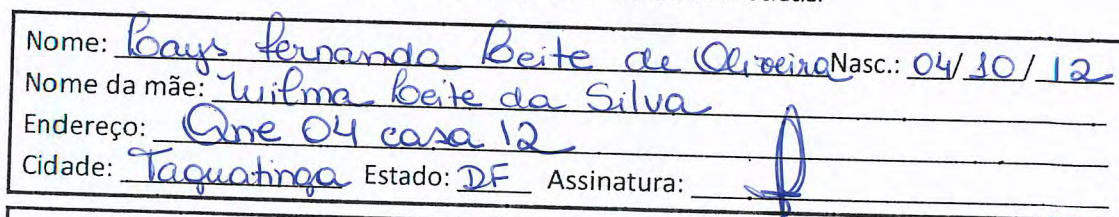 Nome: Lays Fernanda Leite de Oliveira Nasc.: 04/10/12
Nome da mãe: Wilma Leite da Silva
Endereço: Qne 04 casa 12
Cidade: Taguatinga Estado: DF Assinatura: